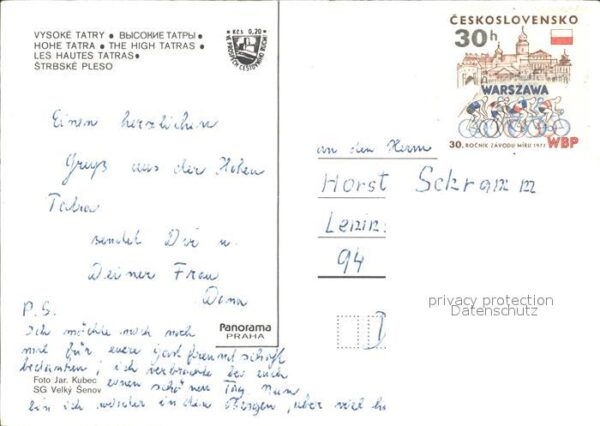 VYSOKÉ TATRY • ВЫСОКИЕ ТАТРЫ •
HOHE TATRA • THE HIGH TATRAS •
LES HAUTES TATRAS •
ŠTRBSKÉ PLESO
Kčs 0,20
ČESKOSLOVENSKO
30h
WARSZAWA
30. ROČNÍK ZÁVODU MÍRU 1977 WBP
Einen herzlichen
Gruß aus der Hohen
Tatra
sendet Dir u.
Deiner Frau
Dana
P.S.
Ich möchte mich noch
mal für eure Gastfreundschaft
bedanken, ich verbrachte bei euch
einen schönen Tag nun
bin ich wieder in den Bergen, aber viel
an den Herrn
Horst
94
D
privacy protection
Datenschutz
Panorama
PRAHA
Foto Jar. Kubec
SG Velký Šenov